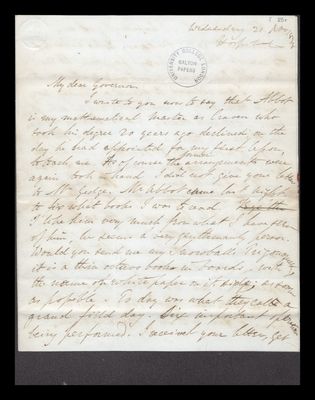 Wednesday 21
UNIVERSITY COLLEGE LONDON
GALTON
PAPERS
My dear Governor
I write to you now to say that Abbot
is my mathematical master as Craven who
took his degree 20 years ago declined on the
day he had appointed for my first lesson,
to teach me. So of course the former arrangements were
again took in hand. I did not give your letter
to Mr Hodge. Mr Abbot came last night
to see what books I was to read.
I like him very much from what I have seen
of him, he seems a very gentlemanly person.
Would you send me my Snowball's Trigonometry
it is a thin octavo book in boards, with
the name on white paper on it as soon
as possible. To day was what they call a
grand field day. Six important operations
being performed. I received your letter, get